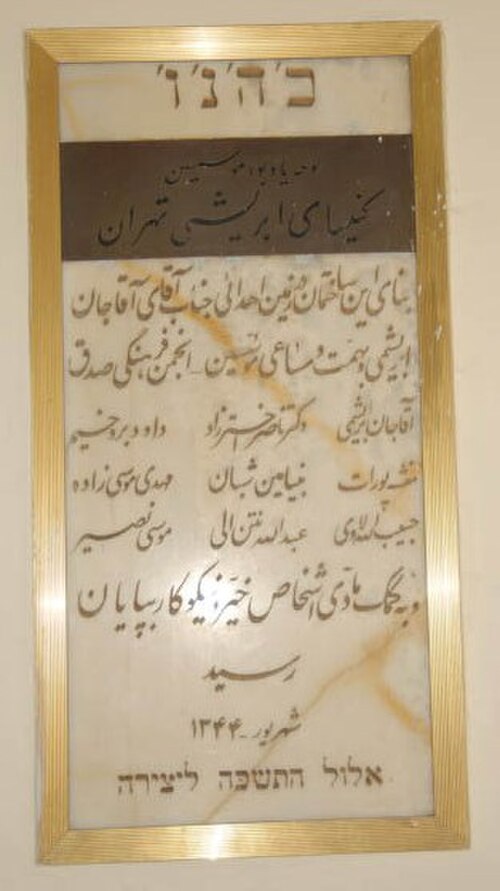 כ׳ה׳נ׳ו׳
لوحه یادبود موسسین
کنیسای ابریشمی تهران
بنای این ساختمان در زمین اهدائی جناب آقای آقاجان
ابریشمی بهمت و مساعی موسسین انجمن فرهنگی صدق
آقاجان ابریشمی دکتر ناصر اخترزاد داود دبره خیم
پورات بنیامین شبان مهدی موسی زاده
حبیب الله لاوی عبدالله نتن الی موسی نصیر
و به کمک مادی اشخاص خیر و نیکوکار بپایان
رسید
شهریور - ۱۳۴۴
אלול התשכה ליצירה